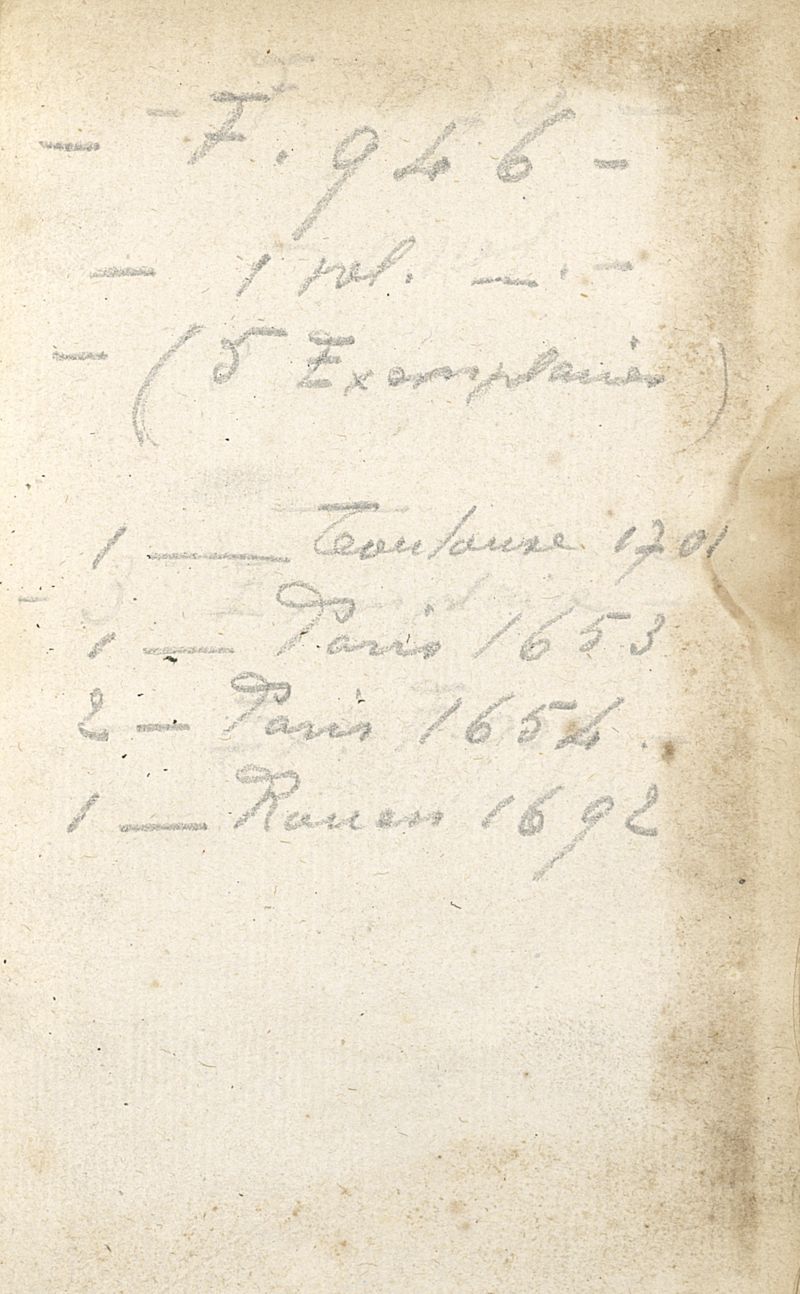 — F. 946 —
— 1 vol. — . —
— ( 5 Exemplaires )
1 — Toulouse 1701
1 — Paris 1653
2 — Paris 1654.
1 — Rouen 1692